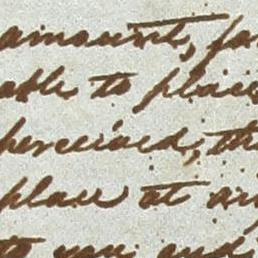 amount, for
able to place
perceived, the
place at any
to you and